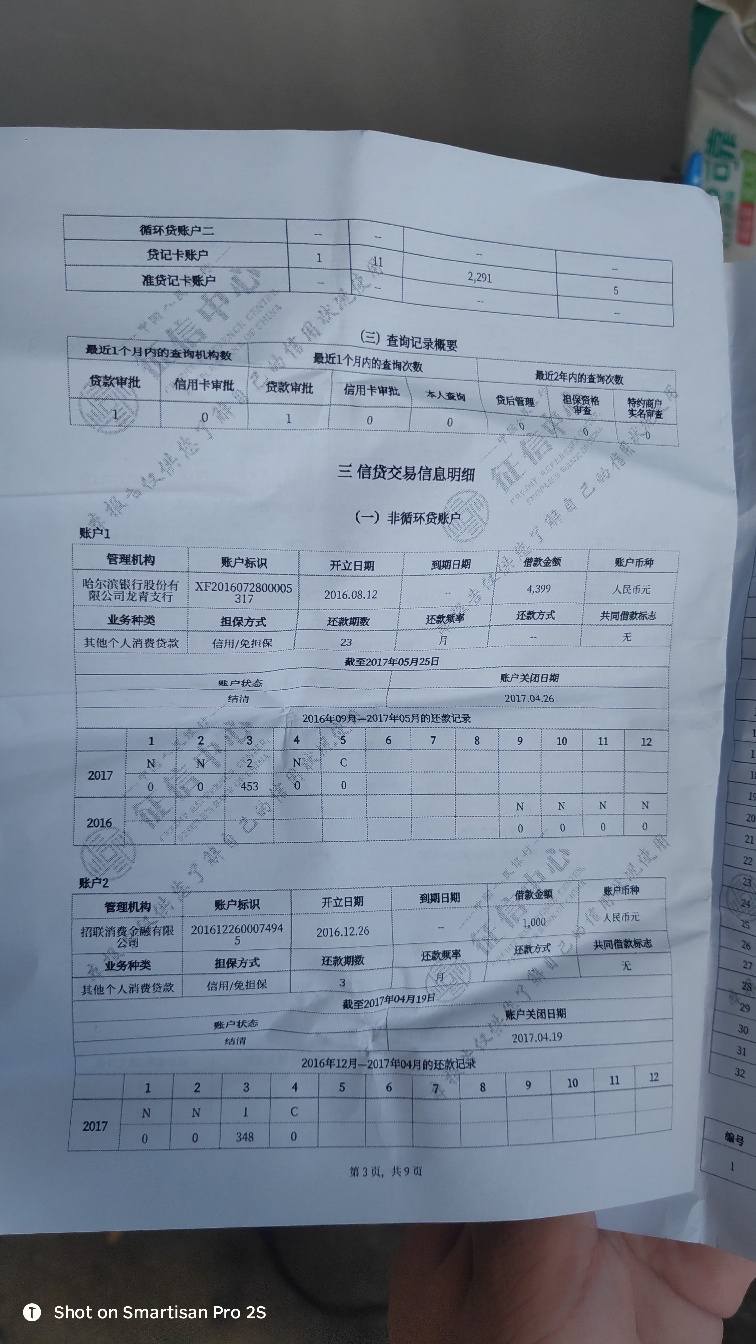 循环贷账户二 -- -- -- --
贷记卡账户 1 11 2,291 5
准贷记卡账户 -- -- -- --
(三) 查询记录概要
最近1个月内的查询机构数 最近1个月内的查询次数 最近2年内的查询次数
贷款审批 信用卡审批 贷款审批 信用卡审批 本人查询 贷后管理 担保资格审查 特约商户实名审查
1 0 1 0 0 0 0 0
三 信贷交易信息明细
(一) 非循环贷账户
账户1
管理机构 账户标识 开立日期 到期日期 借款金额 账户币种
哈尔滨银行股份有限公司龙青支行 XF2016072800005317 2016.08.12 -- 4,399 人民币元
业务种类 担保方式 还款期数 还款频率 还款方式 共同借款标志
其他个人消费贷款 信用/免担保 23 月 -- 无
截至2017年05月25日
账户状态 账户关闭日期
结清 2017.04.26
2016年09月—2017年05月的还款记录
1 2 3 4 5 6 7 8 9 10 11 12
2017 N N 2 N C
0 0 453 0 0
2016 N N N N
0 0 0 0
账户2
管理机构 账户标识 开立日期 到期日期 借款金额 账户币种
招联消费金融有限公司 2016122600074945 2016.12.26 -- 1,000 人民币元
业务种类 担保方式 还款期数 还款频率 还款方式 共同借款标志
其他个人消费贷款 信用/免担保 3 月 无
截至2017年04月19日
账户状态 账户关闭日期
结清 2017.04.19
2016年12月—2017年04月的还款记录
1 2 3 4 5 6 7 8 9 10 11 12
2017 N N 1 C
0 0 348 0
第 3 页, 共 9 页
征信中心
本报告仅供您了解自己的信用状况使用
19
20
21
22
23
24
25
26
27
28
29
30
31
32
编号
1
Shot on Smartisan Pro 2S